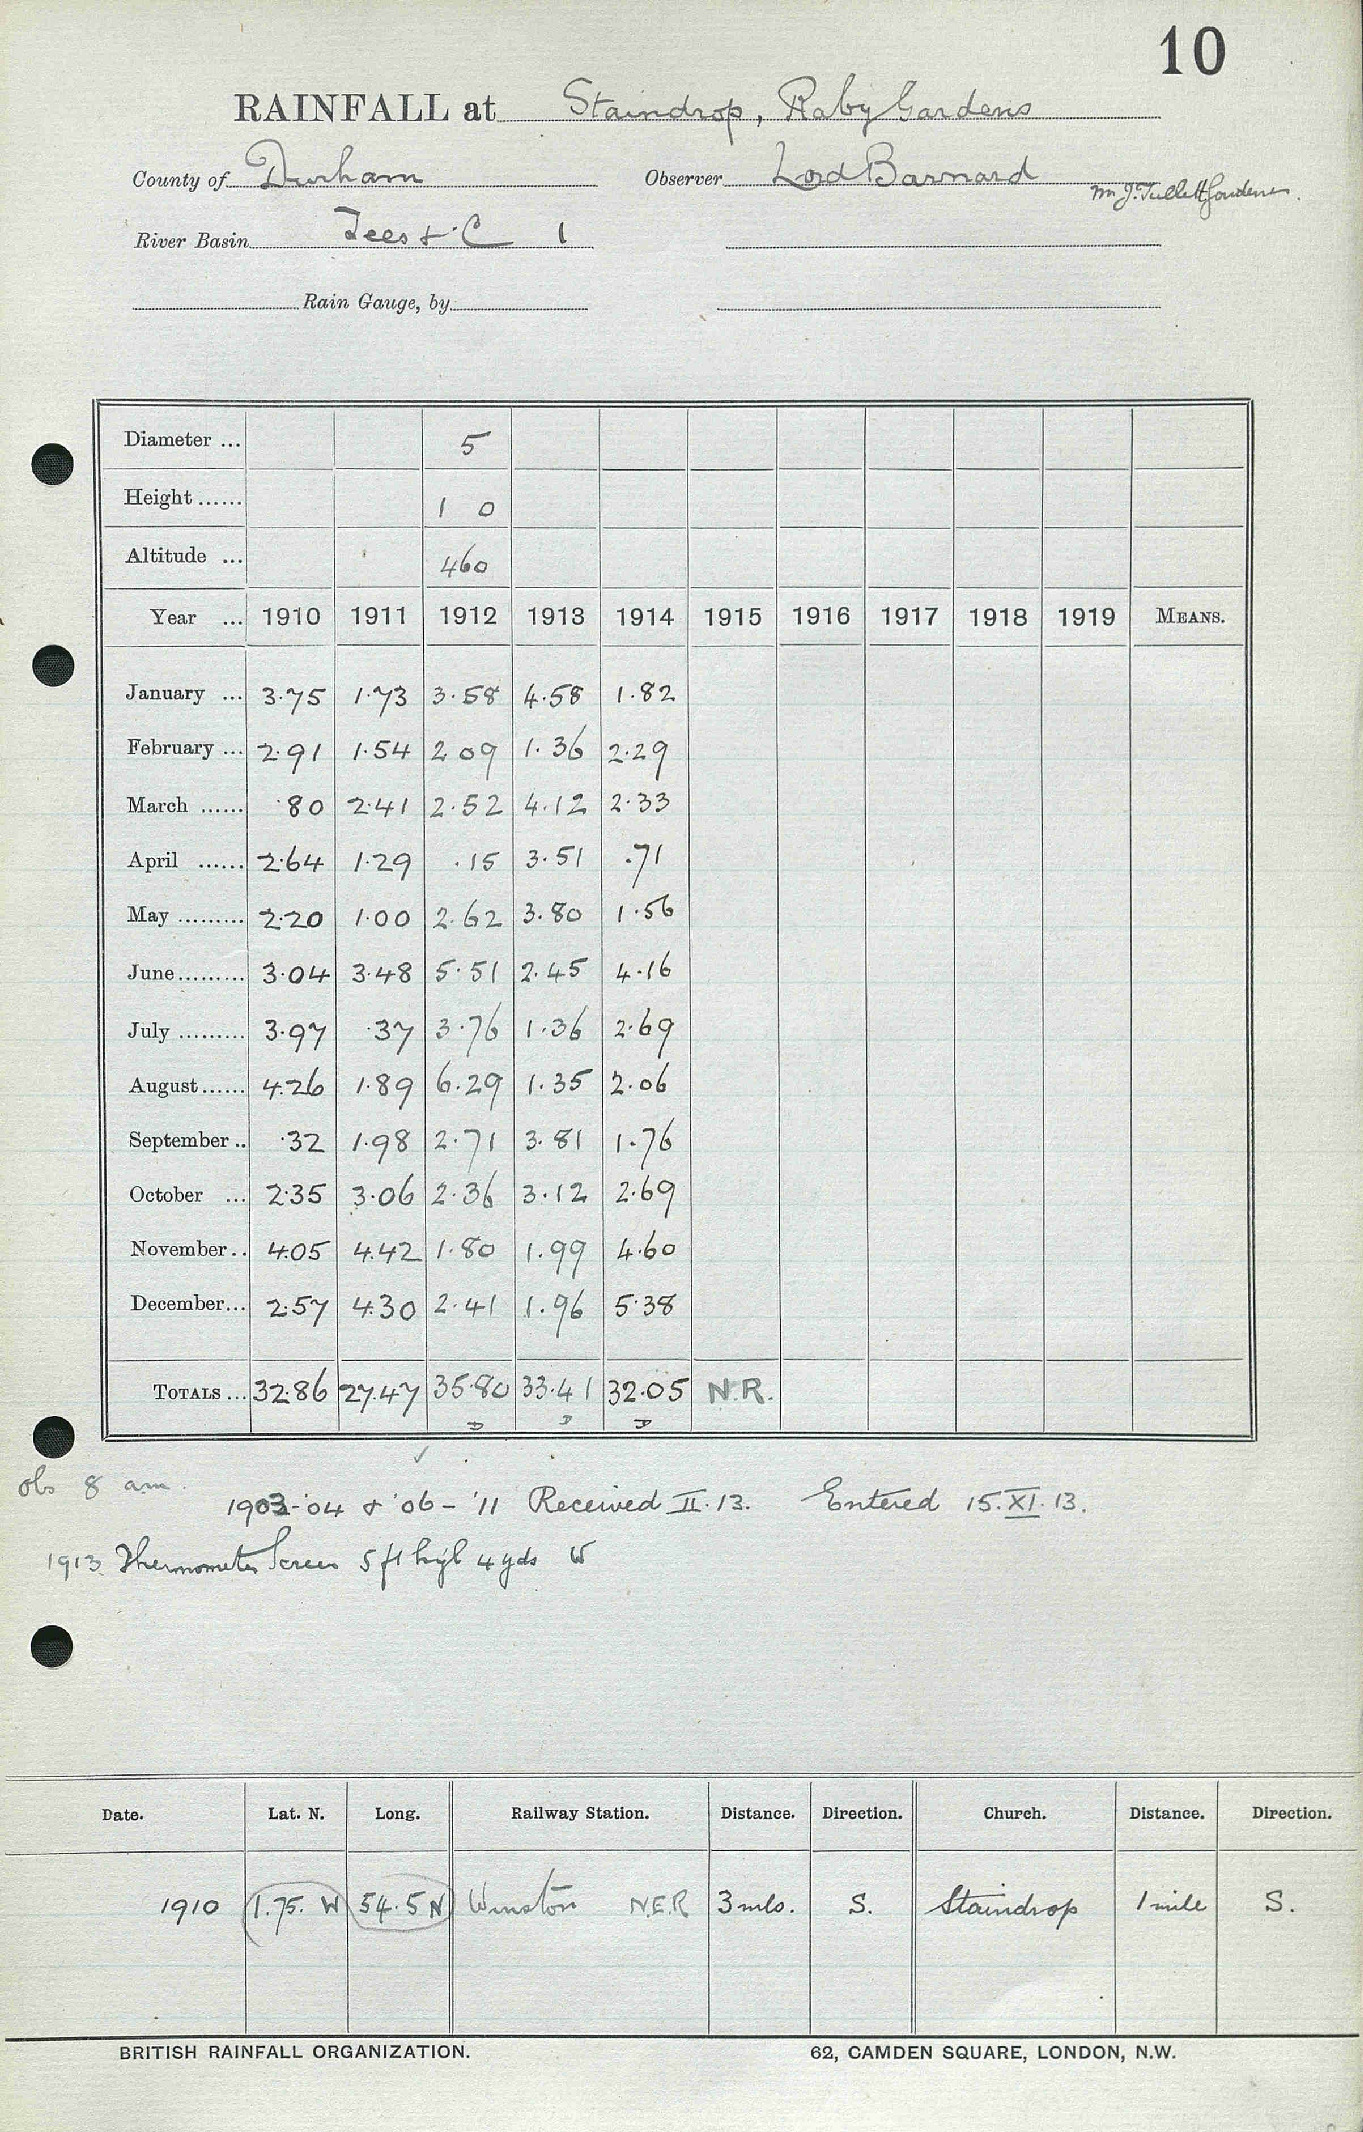 10
RAINFALL at Staindrop, Raby Gardens
County of Durham Observer Lord Barnard
Mr J. Tullett Gardener.
River Basin Tees & C 1
Rain Gauge, by
Diameter ... 5
Height ...... 1 0
Altitude ... 460
Year ... 1910 1911 1912 1913 1914 1915 1916 1917 1918 1919 MEANS.
January ... 3.75 1.73 3.58 4.58 1.82
February ... 2.91 1.54 2 09 1.36 2.29
March ...... .80 2.41 2.52 4.12 2.33
April ...... 2.64 1.29 .15 3.51 .71
May ......... 2.20 1.00 2.62 3.80 1.56
June ......... 3.04 3.48 5.51 2.45 4.16
July ......... 3.97 .37 3.76 1.36 2.69
August ...... 4.26 1.89 6.29 1.35 2.06
September .. .32 1.98 2.71 3.81 1.76
October ... 2.35 3.06 2.36 3.12 2.69
November .. 4.05 4.42 1.80 1.99 4.60
December ... 2.57 4.30 2.41 1.96 5.38
TOTALS ... 32.86 27.47 35.80 33.41 32.05 N.R.
D D D
obs 8 am.
1903-'04 & '06-'11 Received II.13. Entered 15.XI.13.
1913. Thermometer Screen 5 ft high 4 yds W
Date. Lat. N. Long. Railway Station. Distance. Direction. Church. Distance. Direction.
1910 1.75. W 54.5 N Winston N.E.R 3 mls. S. Staindrop 1 mile S.
BRITISH RAINFALL ORGANIZATION. 62, CAMDEN SQUARE, LONDON, N.W.